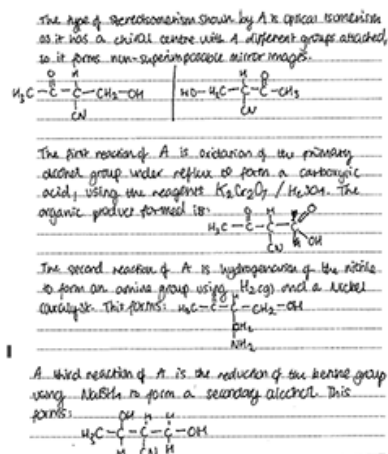 The type of stereoisomerism shown by A is optical isomerism
as it has a chiral centre with 4 different groups attached,
so it forms non-superimposable mirror images.
O H H O
H₃C - C - C - CH₂ - OH HO - H₂C - C - C - CH₃
CN CN
The first reaction of A is oxidation of the primary
alcohol group under reflux to form a carboxylic
acid, using the reagents K₂Cr₂O₇ / H₂SO₄. The
organic product formed is:
O H O
H₃C - C - C - C
CN OH
The second reaction of A is hydrogenation of the nitrile
to form an amine group using H₂(g) and a Nickel
catalyst. This forms: H₃C - C - C - CH₂ - OH
CH₂
NH₂
A third reaction of A is the reduction of the ketone group
using NaBH₄ to form a secondary alcohol. This
forms:
OH H H
H₃C - C - C - C - OH
H CN H